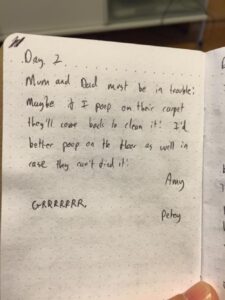 Day 2.
Mum and Dad must be in trouble!
Maybe if I poop on their carpet
they'll come back to clean it! I'd
better poop on the floor as well in
case they can't find it!
Amy
GRRRRRRR,
Petey